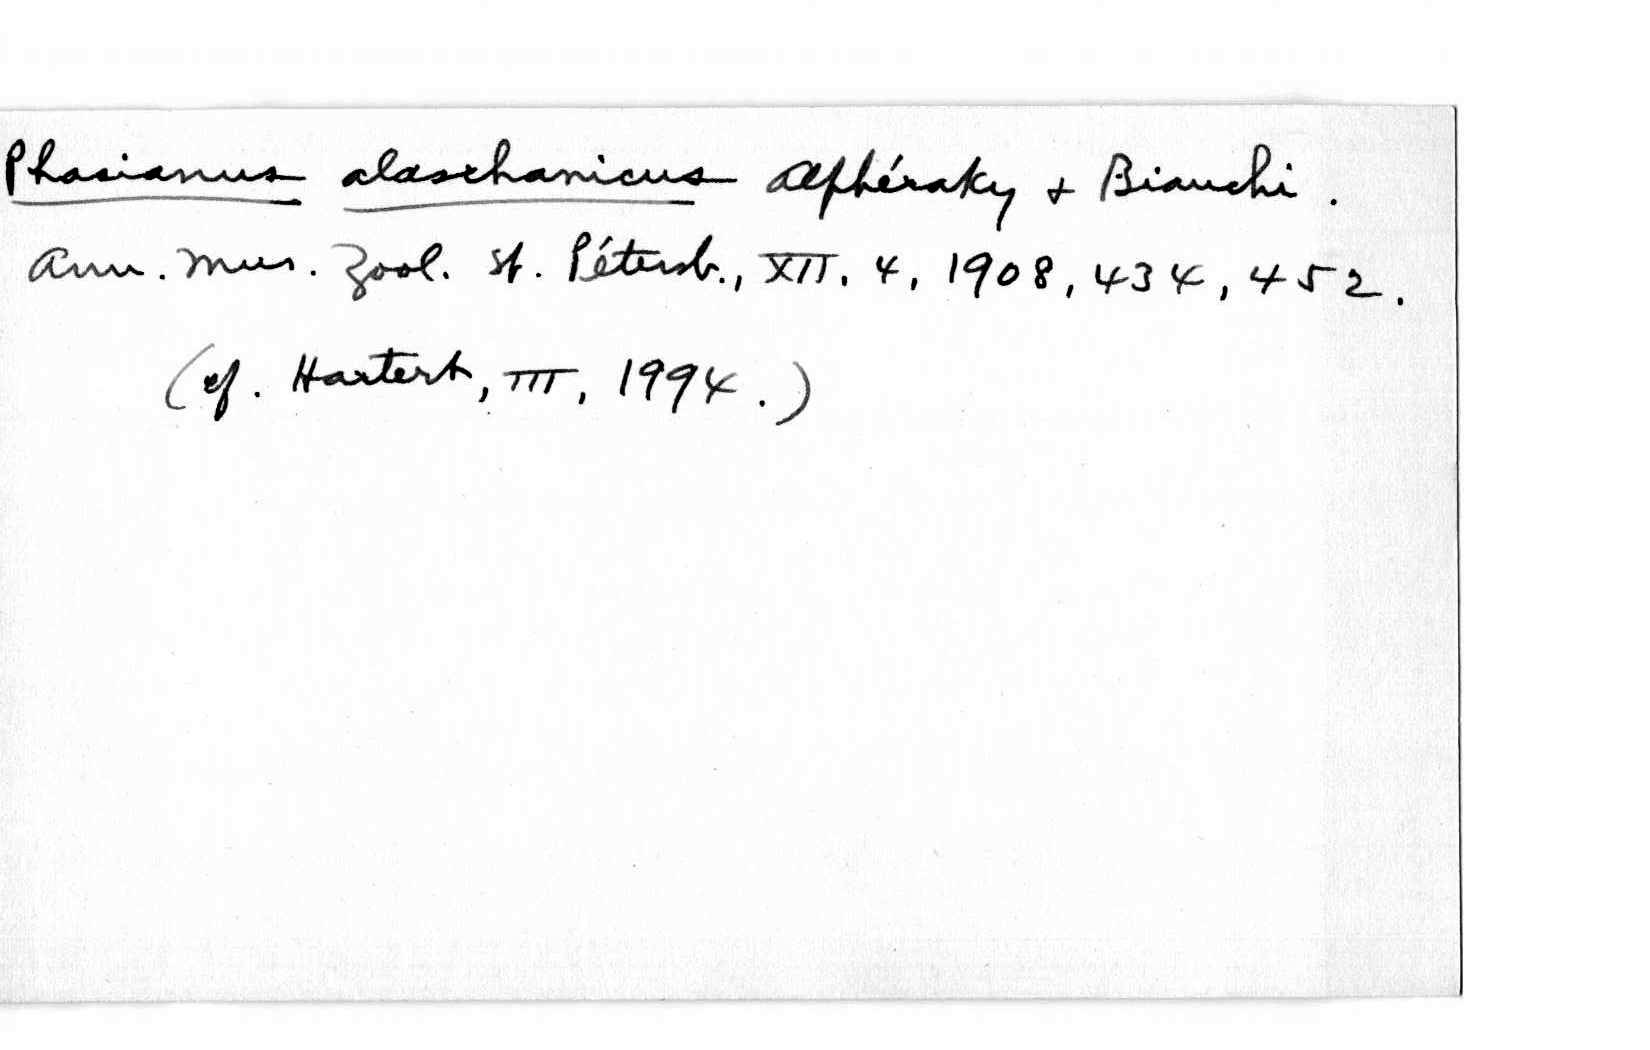 Phasianus alaschanicus Alphéraky & Bianchi.
Ann. Mus. Zool. St. Pétersb., XII. 4, 1908, 434, 452.
(cf. Hartert, III, 1994.)